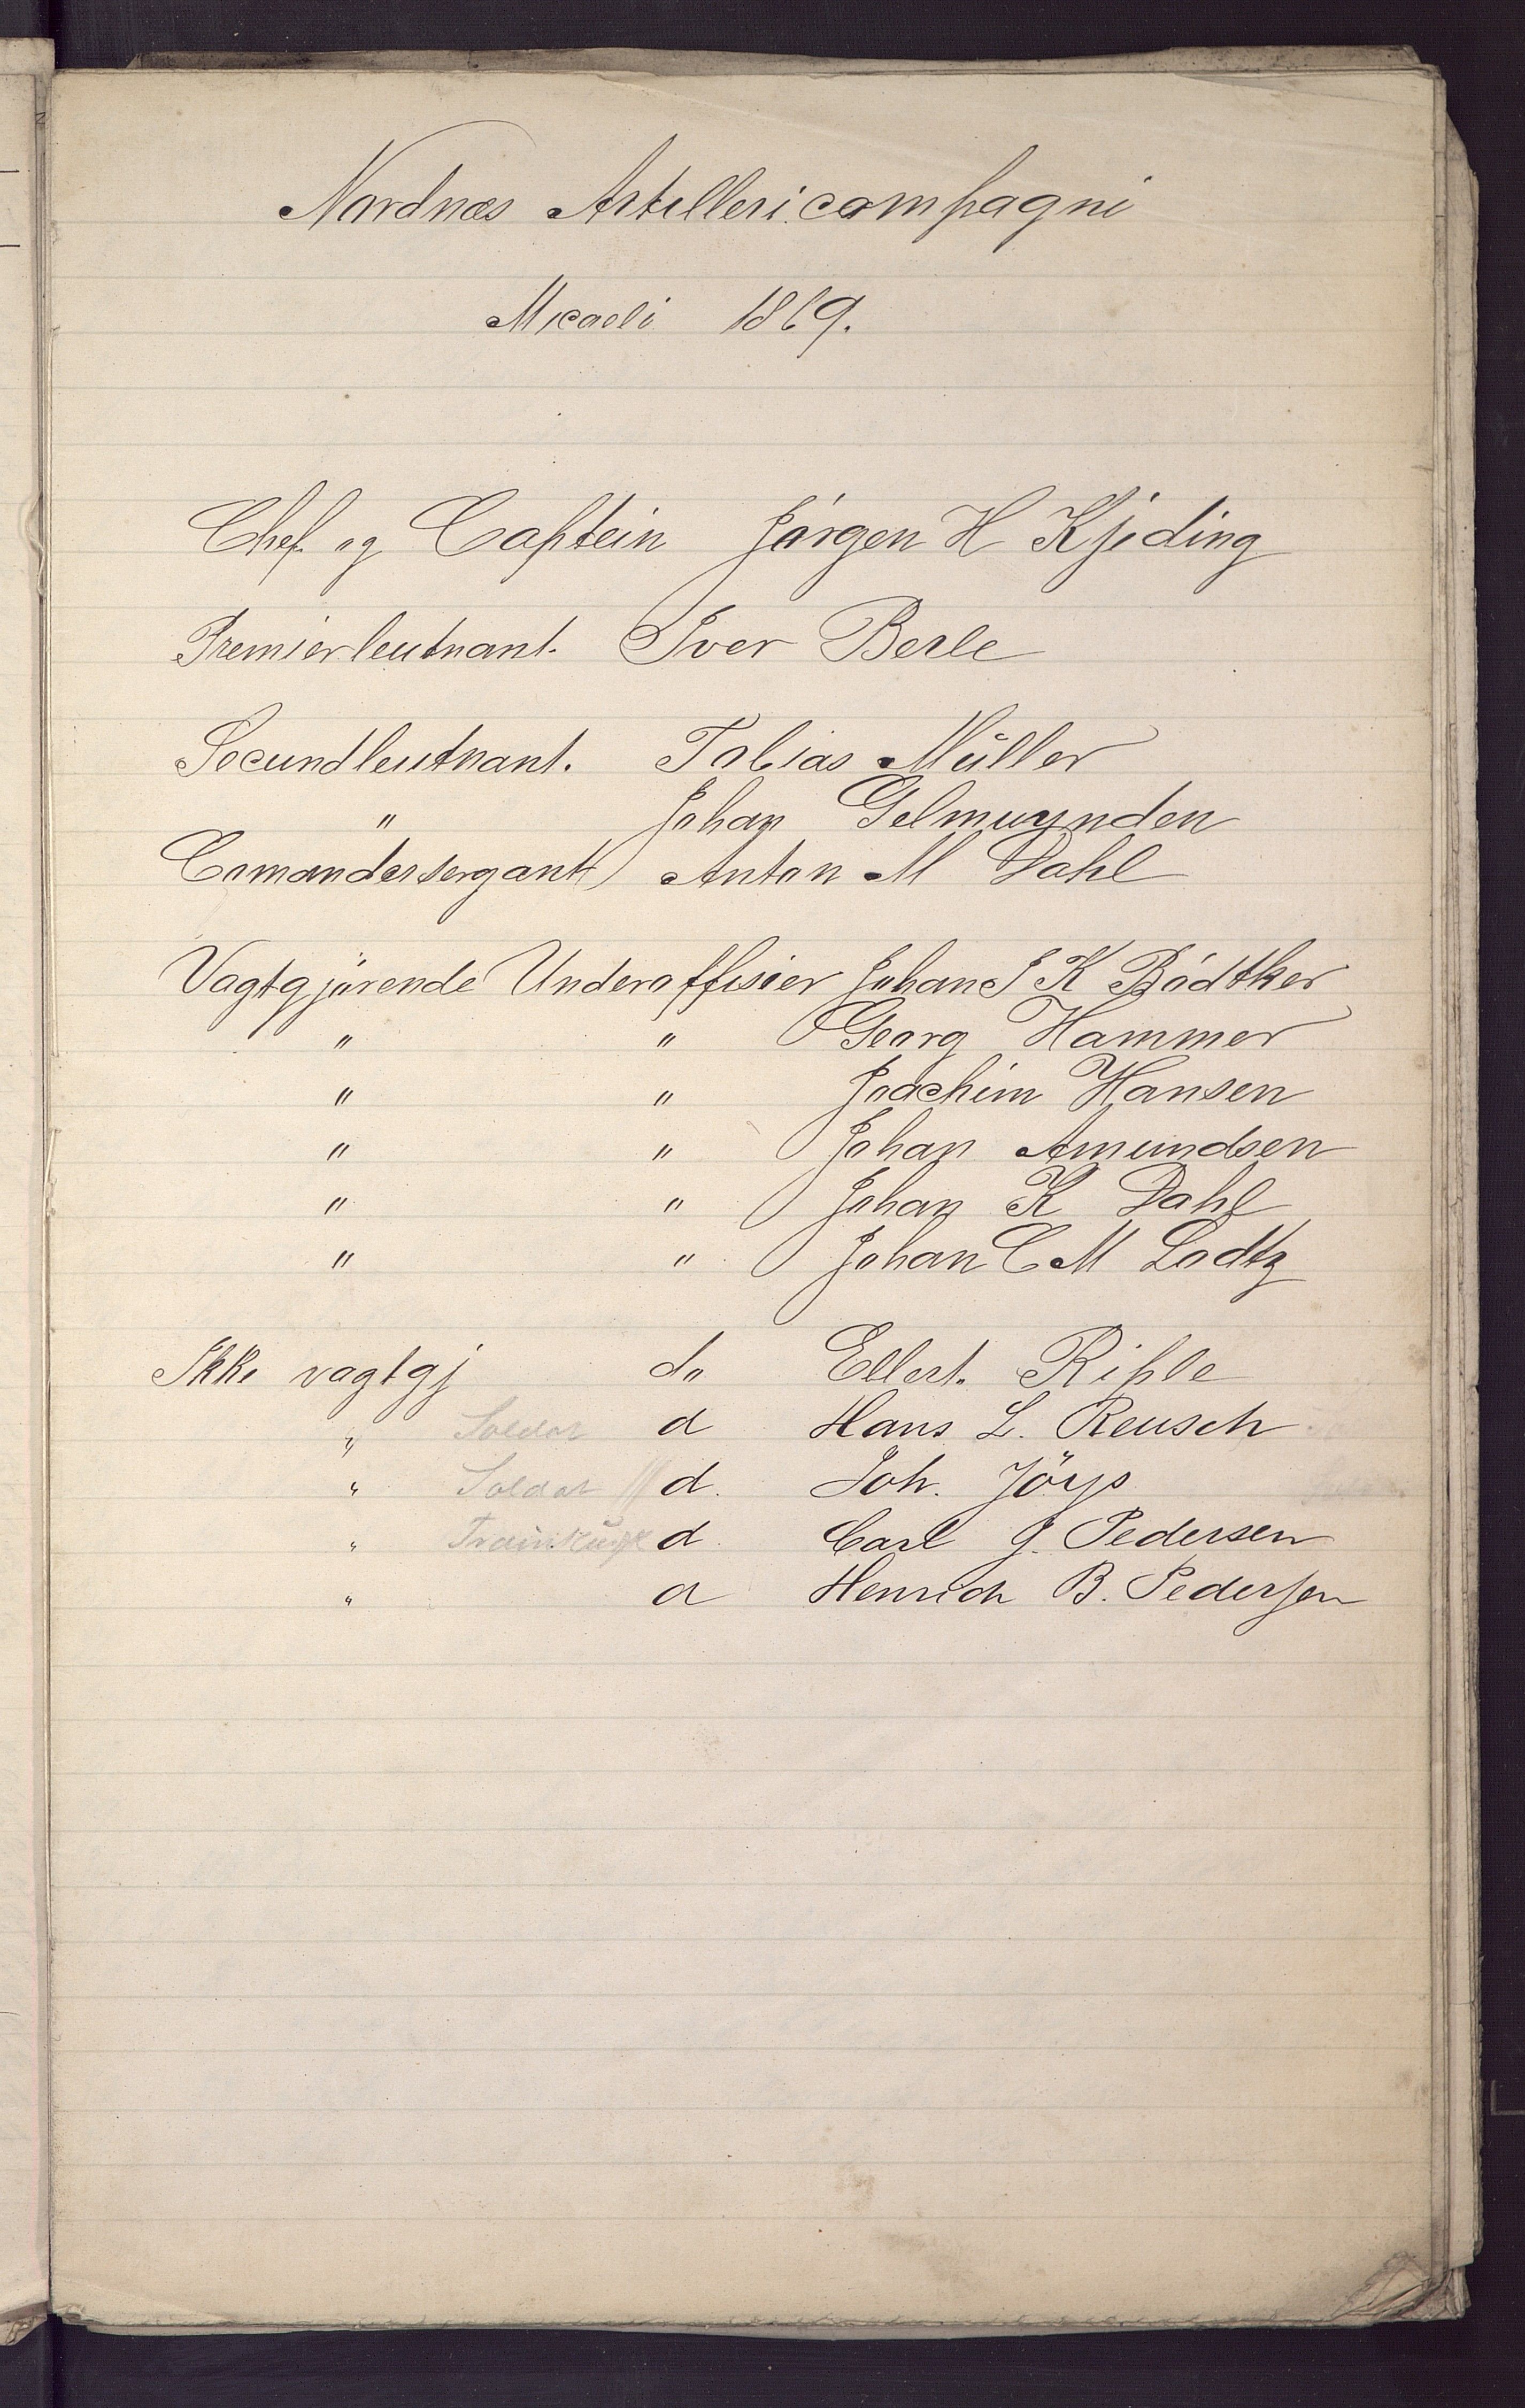 Nordnæs Artillericompagni
Micaeli 1869.
Chef og Captein Jörgen H Kjeding
Premierleutnant. Iver Berle
Secundleutnant. Tobias Müller
" Johan Gelmuynden
Comandersergant Anton M Dahl
Vagtgjörende Underoffisier Johan J K Bödtker
" " Georg Hammer
" " Joachim Hansen
" " Johan Amundsen
" " Johan K Dahl
" " Johan C M Lodtz
Ikke vagtgj do Ellert. Riple
" Soldat d Hans L. Reusch
" Soldat d. Joh. Jöys
" d. Carl J. Pedersen
" d Henrich B. Pedersen